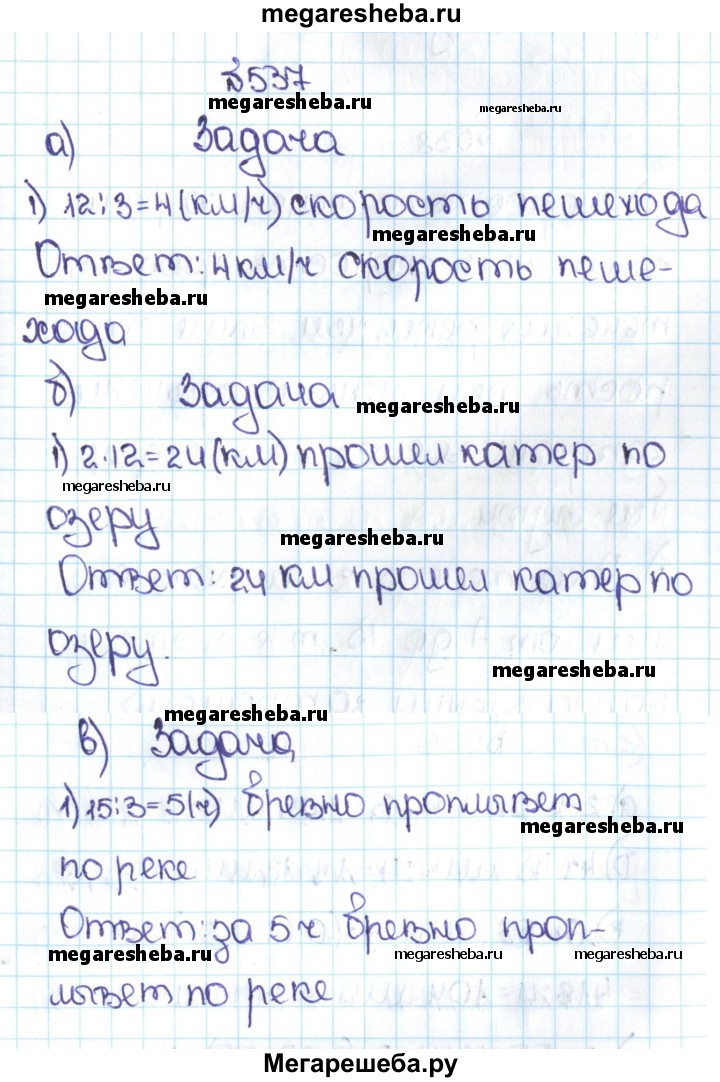 megaresheba.ru
№537
megaresheba.ru
megaresheba.ru
а) Задача
1) 12:3=4(км/ч) скорость пешехода
megaresheba.ru
Ответ: 4 км/ч скорость пеше-
megaresheba.ru
хода
б) Задача
megaresheba.ru
1) 2·12=24(км) прошел катер по
megaresheba.ru
озеру
megaresheba.ru
Ответ: 24 км прошел катер по
озеру.
megaresheba.ru
megaresheba.ru
в) Задача
1) 15:3=5(ч) бревно проплывет
megaresheba.ru
по реке
Ответ: за 5 ч бревно проп-
megaresheba.ru
megaresheba.ru
megaresheba.ru
лывет по реке
Мегарешеба.ру